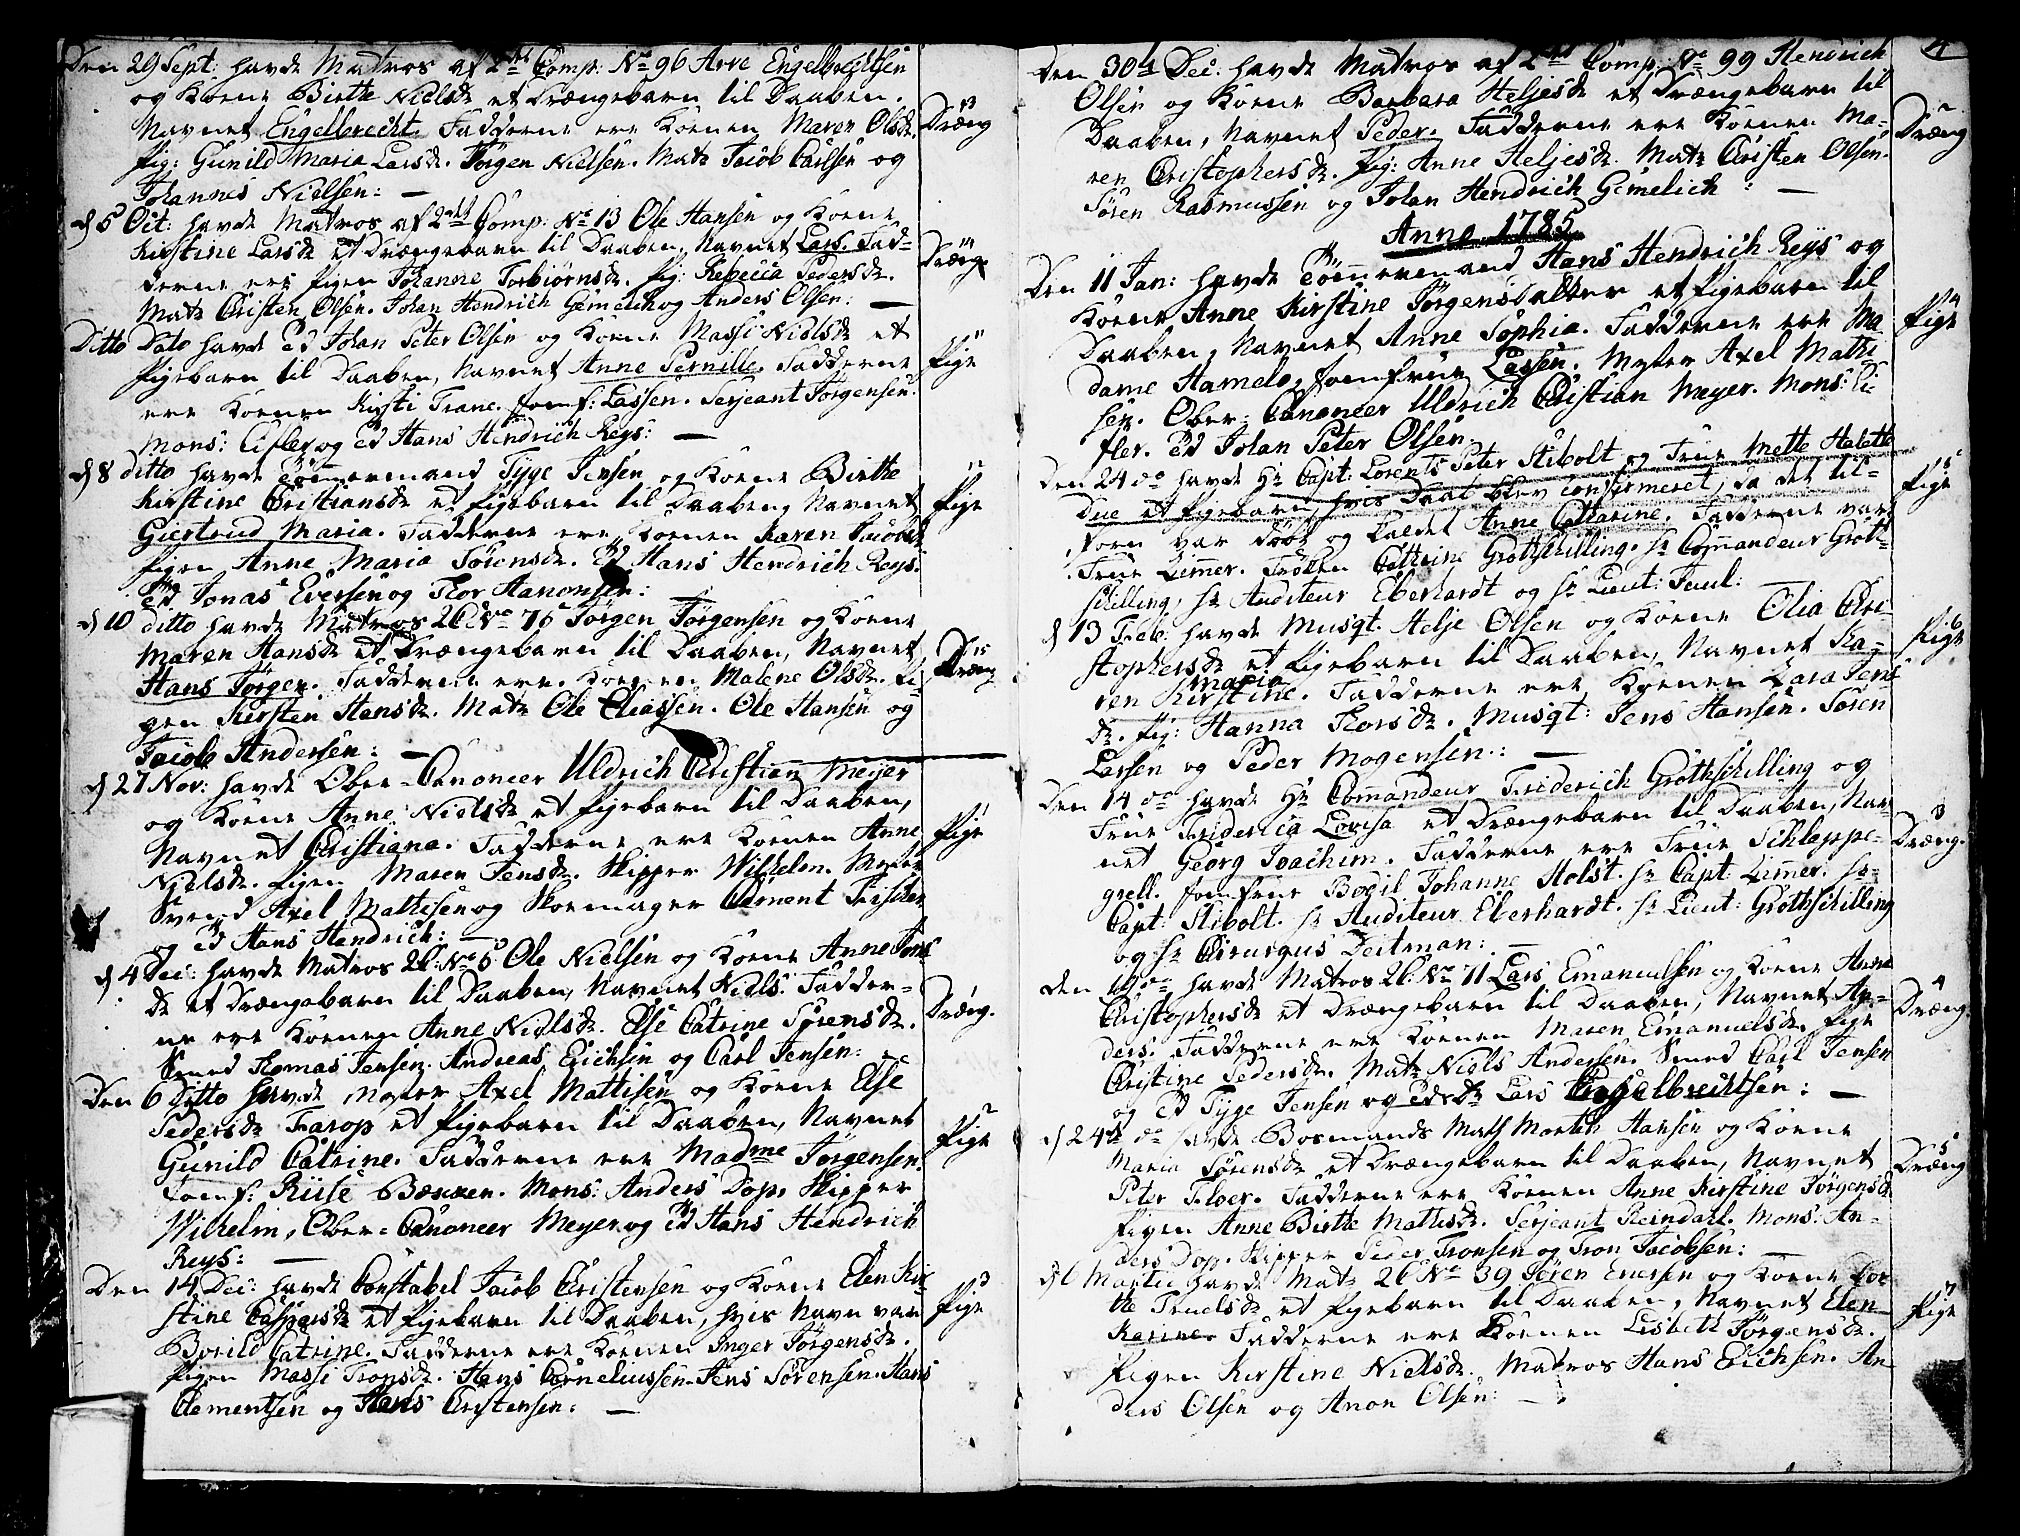 Den 29 Sept: havde Matros af 2det Comp: No 96 Arve Engelbrechtsen
og Kone Birthe Nielsdr et Drængebarn til Daaben.
Navnet Engelbrecht. Fadderne ere Konen Maren Olsdr.
13
Dræng
Pig: Gunild Maria Larsdr. Jørgen Nielsen. Matr Jacob Carlsen og
Johannes Nielsen: —
d 5 Oct: havde Matros af 2det Comp: No 13 Ole Hansen og Kone
Kirstine Larsdr et Drængebarn til Daaben, Navnet Lars. Fad-
14
Dræng
derne ere Pigen Johanne Torbiørnsdr. Pig: Rebecca Pedersdr.
Matr Christen Olsen. Johan Hendrich Gemelich og Anders Olsen: —
Ditto Dato havde Ed Johan Peter Olsen og Kone Massi Nielsdr et
11
Pige
Pigebarn til Daaben, Navnet Anne Pernille. Fadderne
ere Konen Kirsti Trane. Jomf: Lassen. Serjeant Jørgensen.
Mons: Cisler og Ed Hans Hendrich Reys: —
d 8 ditto havde Tömmermand Tyge Jensen og Kone Birthe
Kirstine Christiansdr et Pigebarn til Daaben, Navnet
12
Pige
Giertrud Maria. Fadderne ere Konen Karen Jacobsdr
Pigen Anne Maria Sörensdr. Ed Hans Hendrich Reys.
Ed Jonas Eversen og Thor Hanonsen:
d 10 ditto havde Matros 2C No 76 Jörgen Jörgensen og Kone
Maren Hansdr et Drængebarn til Daaben, Navnet
15
Dræng
Hans Jörgen. Fadderne ere Konen Malene Olsdr. Pi-
gen Kirsten Hansdr. Matr Ole Eliassen. Ole Hansen og
Jacob Andersen: —
d 27 Nov: havde Ober-Canoneer Uldrich Christian Meyer
og Kone Anne Nielsdr et Pigebarn til Daaben,
1
Pige
Navnet Christiana. Fadderne ere Konen Anne
Nielsdr. Pigen Maren Jensdr. Skipper Wilhelm. Mester
Svend Axel Mathisen og Skoemager Clement Fischer
og Ed Hans Hendrich: —
d 4 Dec: havde Matros 2C: No 5 Ole Nielsen og Kone Anne Jons
dr et Drængebarn til Daaben, Navnet Niels. Fadder-
1
Dræng.
ne ere Konen Anne Nielsdr. Else Catrine Sörensdr.
Smed Thomas Jensen. Andreas Erichsen og Carl Jensen: —
Den 6 Ditto havde Mester Axel Mattisen og Kone Else
Pedersdr Farop et Pigebarn til Daaben, Navnet
2
Pige
Gunild Catrine. Fadderne ere Madme Jörgensen.
Jomf: Riise Bæxxen. Mons: Anders Dop, Skipper
Wilhelm, Ober-Canoneer Meyer og Ed Hans Hendrich
Reys: —
Den 14 Dec: havde Constabel Jacob Christensen og Kone Elen Kir-
3
Pige
stine Caspersdr et Pigebarn til Daaben, hvis Navn var
Boeild Catrine. Fadderne ere Konen Inger Jörgensdr.
Pigen Massi Tronsdr. Hans Corneliussen. Jens Sörensen. Hans
Clementsen og Hans Christensen: —
4
Den 30d Dec: havde Matros af 2det Comp: No 99 Hendrich
Olsen og Kone Barbara Heljesdr et Drængebarn til
2
Dræng
Daaben, Navnet Peder. Fadderne ere Konen Ma-
ren Christophersdr. Pig: Anne Heljesdr. Matr Christen Olsen.
Sören Rasmussen og Johan Hendrich Gemelich: —
Anno 1785
Den 11 Jan: havde Tömmermand Hans Hendrich Reys og
Kone Anne Kirstine Jörgensdatter et Pigebarn til
4
Pige
Daaben, Navnet Anne Sophia. Fadderne ere Ma-
dame Hamelo, Jomfrue Lassen. Mester Axel Mathi-
sen. Ober-Canoneer Uldrich Christian Meyer. Mons: Ci-
sler. Ed Johan Peter Olsen.
Den 24 do havde Hr Capt: Lorents Peter Stibolt og Frue Mette Malette
5
Pige
Due et Pigebarn, hvis Daab blev confirmeret, da det til-
forn var döbt og kaldet Anne Catharine. Fadderne vare
Frue Limer. Fröken Cathrine Grothschilling. Hr Commandeur Groth-
schilling, Hr Auditeur Eberhardt og Hr Lieut: Juul:
d 13 Feb: havde Musqt. Helje Olsen og Kone Olia Chri-
6
Pige
stophersdr et Pigebarn til Daaben, Navnet Ka-
maria
ren Kirstine. Fadderne ere Konen Dara Jens
dr. Pig: Hanna Thorsdr. Musqt: Jens Hansen. Sören
Larsen og Peder Mogensen: —
Den 14 do havde Hr Commandeur Friderich Grothschilling og
Frue Friderica Lovisa et Drængebarn til Daaben, Nav-
3
Dræng.
net Georg Joachim. Fadderne ere Frue Schleppe-
grell. Jomfrue Bodil Johanne Holst. Hr Capt: Limer. Hr
Capt: Stibolt. Hr Auditeur Eberhardt. Hr Lieut: Grothschilling
og Hr Chirurgus Deitman: —
den 19 do havde Matros 2C: No 71 Lars Emanuelsen og Kone Anne
4
Dræng.
Christophersdr et Drængebarn til Daaben, Navnet An-
ders. Fadderne ere Konen Maren Emanuelsdr. Pige
Christine Pedersdr. Matr Niels Andersen. Smed Carl Jensen
og Ed Tyge Jensen og Lars Engelbrechtsen: —
d 24de do havde Bosmands Math Morten Hansen og Kone
5
Dræng
Maria Sörensdr et Drængebarn til Daaben, Navnet
Peter Floer. Fadderne ere Konen Anne Kirstine Jörgensdr
Pigen Anne Birthe Mathisdr. Serjeant Reindahl. Mons: An-
ders Dop. Skipper Peder Tronsen og Tron Jacobsen: —
d 6 Martii havde Matr 2C No 39 Sören Eversen og Kone Dor-
7
Pige
the Truelsdr et Pigebarn til Daaben, Navnet Elen
Karine. Fadderne ere Konen Lisbeth Jörgensdr.
Pigen Kirstine Nielsdr. Matros Hans Erichsen. An-
ders Olsen og Anon Olsen: —